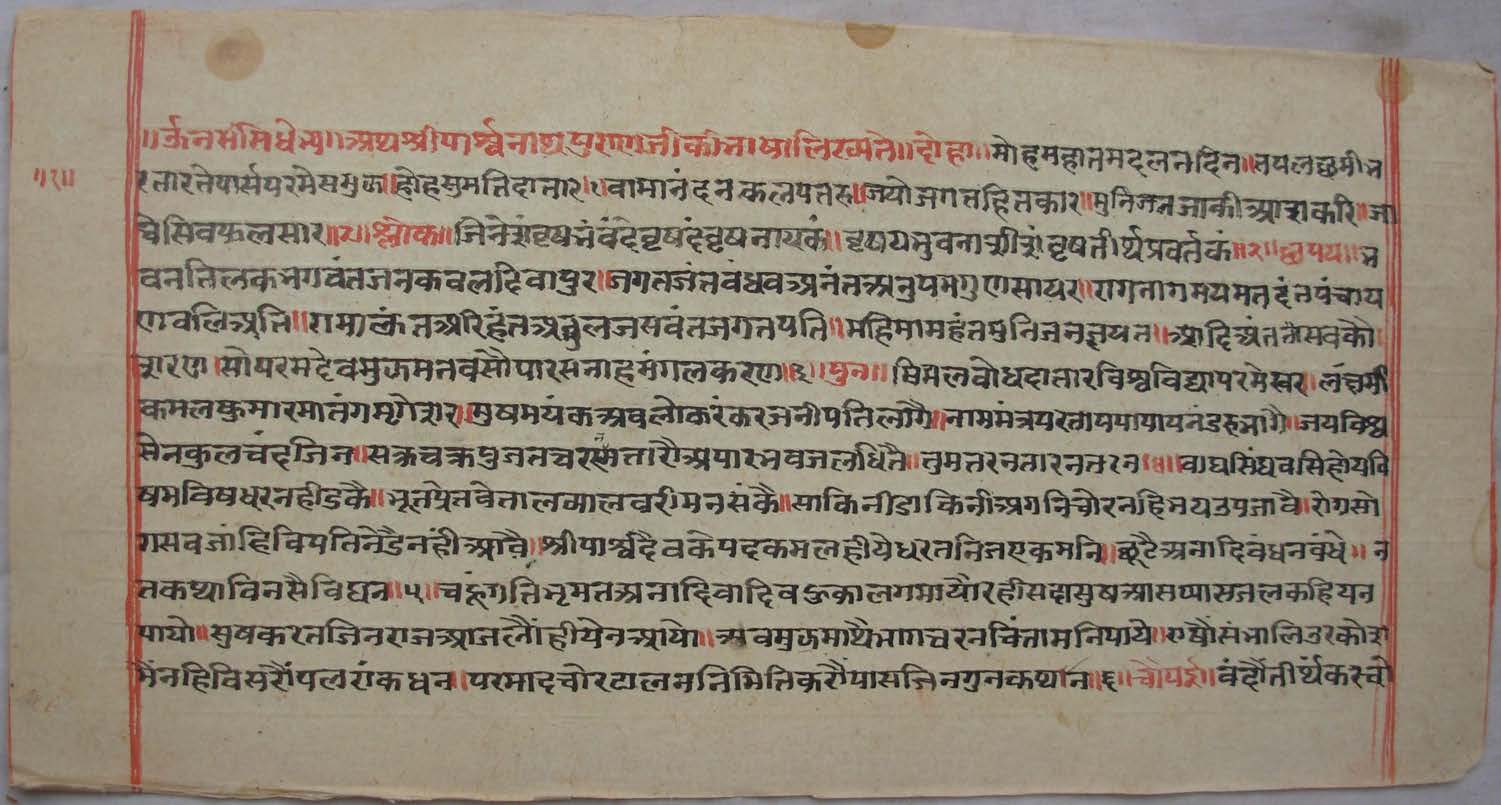 ॥र्ऊनमंसिधेभ्य॥अथश्रीपार्श्वनाथपुराणजीकीभाषालिख्यते॥दोहा॥मोहमहातमदलनदिन॥तपलछमीभ
॥१॥
रतारतेपार्सपरमेसमुझ॥होहसुमतिदातार।१वामानंदनकलपतरु॥जयोजगतहितकार॥मुनिजनजाकीआसकरि॥जा
चेसिवफलसार॥२॥श्लोक॥जिनेशंवृषभंवंदेवृषदंवृषनायकं॥वृषायभुवनाधीशंवृषतीर्थप्रवर्तकं॥३॥छपय॥भ
वनतिलकभगवंतजनकवलदिवापुर॥जगतजंतवंधवअनंतअनुपमगुणसायर॥रागनागमयमतदंतपंचाय
णवलिअति॥रामाकंतअरिहंतअतुलजसवंतजगतपति॥महिमामहंतमुनिजनजपत॥आदिअंतसवकौ
शरण॥सोपरमदेवमुझमनवसौपारसनाहमंगलकरण॥३॥पुनः॥विमलवोधदातारविश्वविद्यापरमेस्वर॥लछमी
कमलकुमारमातंगमृगेशर॥मुषमयंकअवलोकरंकरजनीपतिलाजै॥नाममंत्रपरतापपापपायनंडरुभागै॥जयविश्व
सेनकुलचंदजिन॥सक्रचक्रपुजनचरनतारौअपारभवजलधितै॥तुमतरनतारनतरन॥४॥वाघसिंघवसिहोयवि
षमविषधरनहीडकै॥भूतप्रेतवेतालव्यालवैरीमनसंकै॥साकिनीडाकिनीअगनिचोरनहिभयउपजावै॥रोगसो
गसवजांहिविपतिनेडैनहीआवै॥श्रीपार्श्वदेवकेपदकमलहीयेधरतनिजएकमनि॥छूटैअनादिवंधनवंधे॥न
तकथाविनसैविघन॥५॥चहूंगतिभृमतअनादिवादिवहुकालगमायौरहीसदासुषआसप्यासजलकहियन
पायो॥सुषकरतजिनराजआजलौंहीयेनआयो॥अवमुझमाथैभागचरनचिंतामनिपाये॥राषौंसंभालिउरकोश
मैंनहिविसरौंपलरांकधन॥परमादचोरटालननिमितिकरौंपासजिनगुनकथान॥६॥चौपई॥वंदौंतीर्थंकरचो